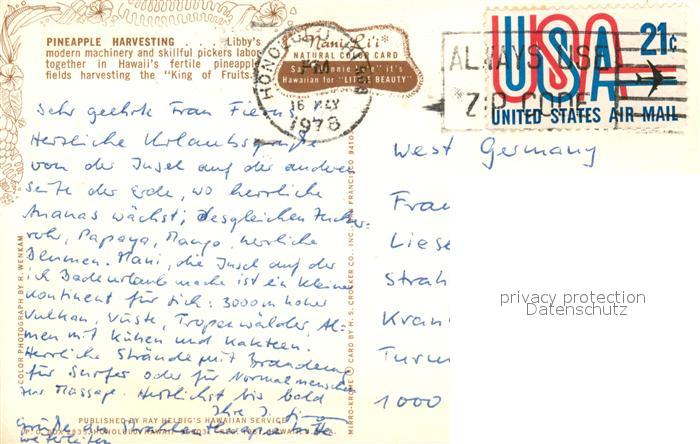 PINEAPPLE HARVESTING . . . . Libby's
modern machinery and skillful pickers labor
together in Hawaii's fertile pineapple
fields harvesting the "King of Fruits."
Nani Li'i*
NATURAL COLOR CARD
Say "Nannie Lee" it's
Hawaiian for "LITTLE BEAUTY"
HONOLULU
PM
16 MAY
1978
ALWAYS USE
ZIP CODE
USA 21c
UNITED STATES AIR MAIL
Sehr geehrte Frau
Herzliche Urlaubsgrüße
von der Insel auf der anderen
Seite der Erde, wo herrliche
Ananas wächst; desgleichen Zucker-
rohr, Papaya, Mango, herrliche
Blumen. Maui, die Insel auf der
ich Badeurlaub mache ist ein kleiner
Kontinent für sich: 3000 m hoher
Vulkan, Wüste, Tropenwälder, Al-
men mit Kühen und Kakteen.
Herrliche Strände mit Brandung
für Surfer oder für Normalmenschen
zur Massage. Herzlichst bis bald
Ihre J.
Grüße an bitte
weiterleiten
West Germany
Frau
Liese
Strah
Kran
Turm
1000
COLOR PHOTOGRAPH BY R. WENKAM
MIRRO-KROME ® CARD BY H. S. CROCKER CO., INC., SAN FRANCISCO
PUBLISHED BY RAY HELBIG'S HAWAIIAN SERVICE
P. O. BOX 2835, HONOLULU, HAWAII
privacy protection
Datenschutz